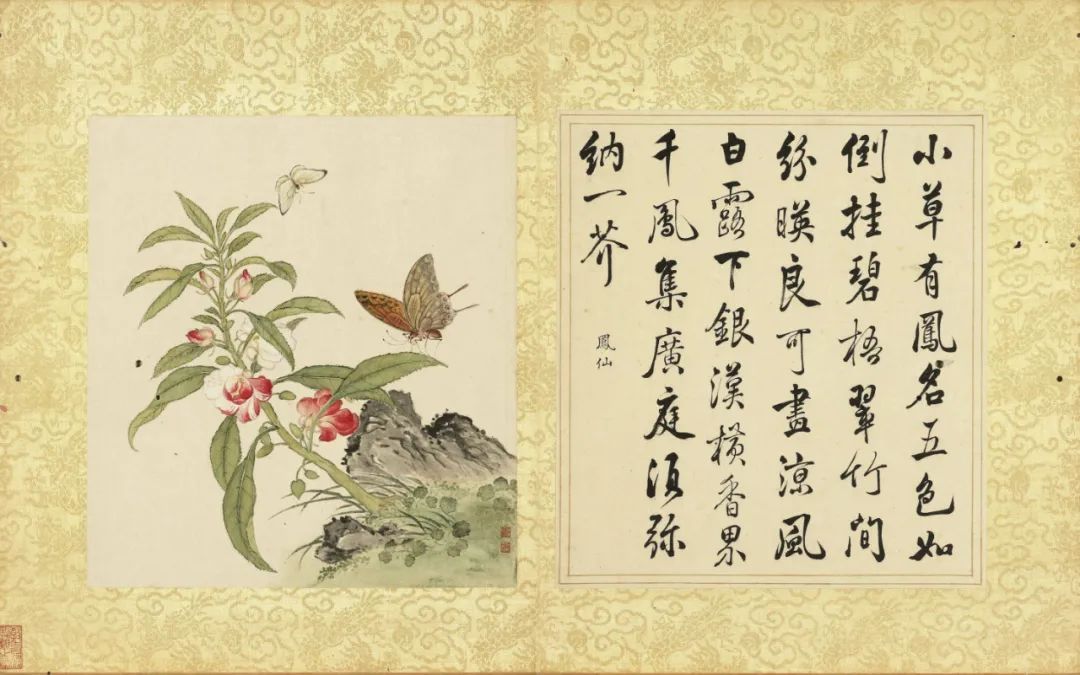 小草有鳳名五色如
倒挂碧梧翠竹間
紛暎良可畫涼風
白露下銀漢橫香界
千鳳集廣庭須弥
納一芥
鳳仙